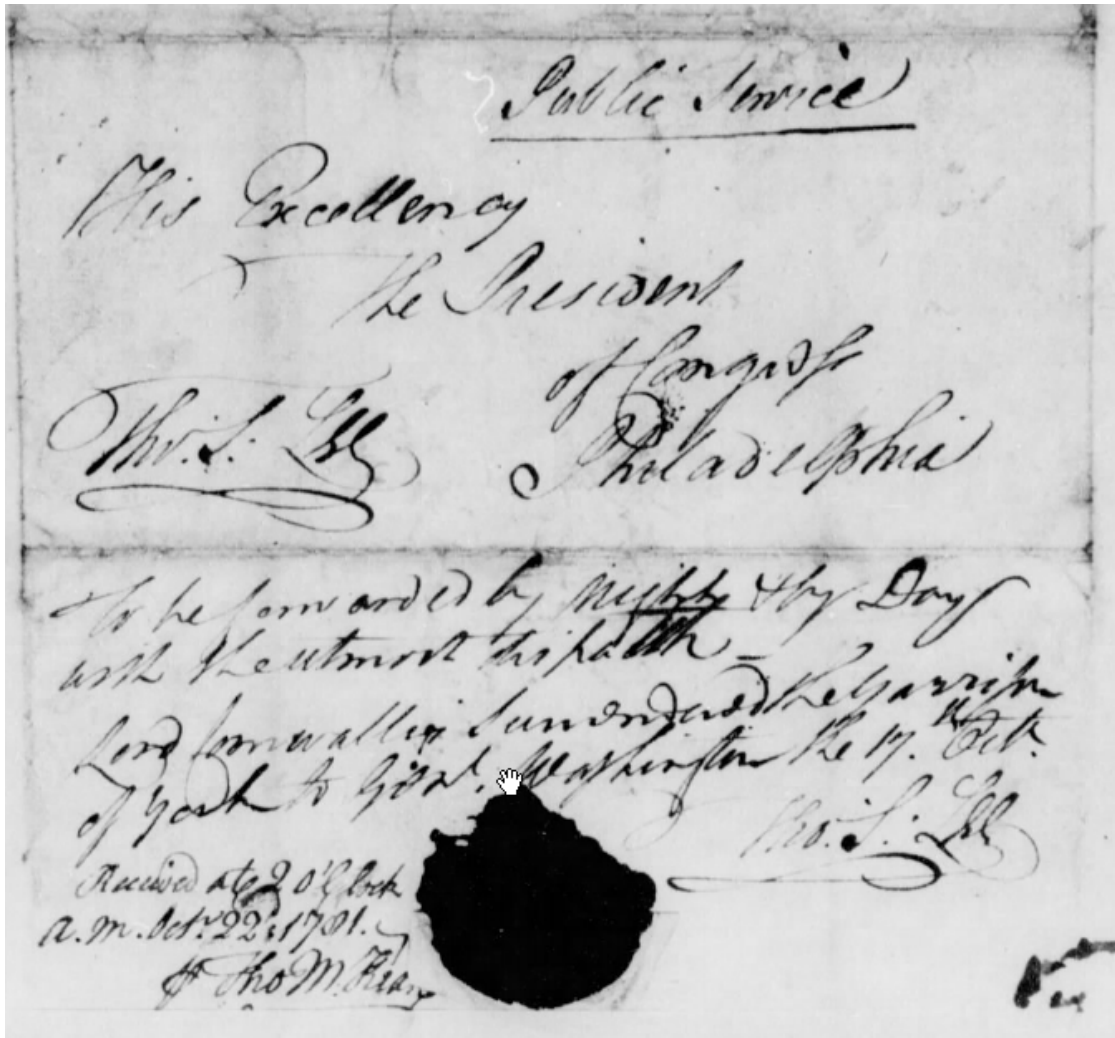 Public Service
His Excellency
the President
of Congress
Philadelphia
Tho. S. Lee
To be forwarded by Night & by Day
with the utmost dispatch —
Lord Cornwallis Surrendered the Garrison
of York to Genl. Washington the 17.th Octr.
Tho. S. Lee
Received at 2 o'Clock
a.m. Octr. 22d, 1781.
Tho M.Kean